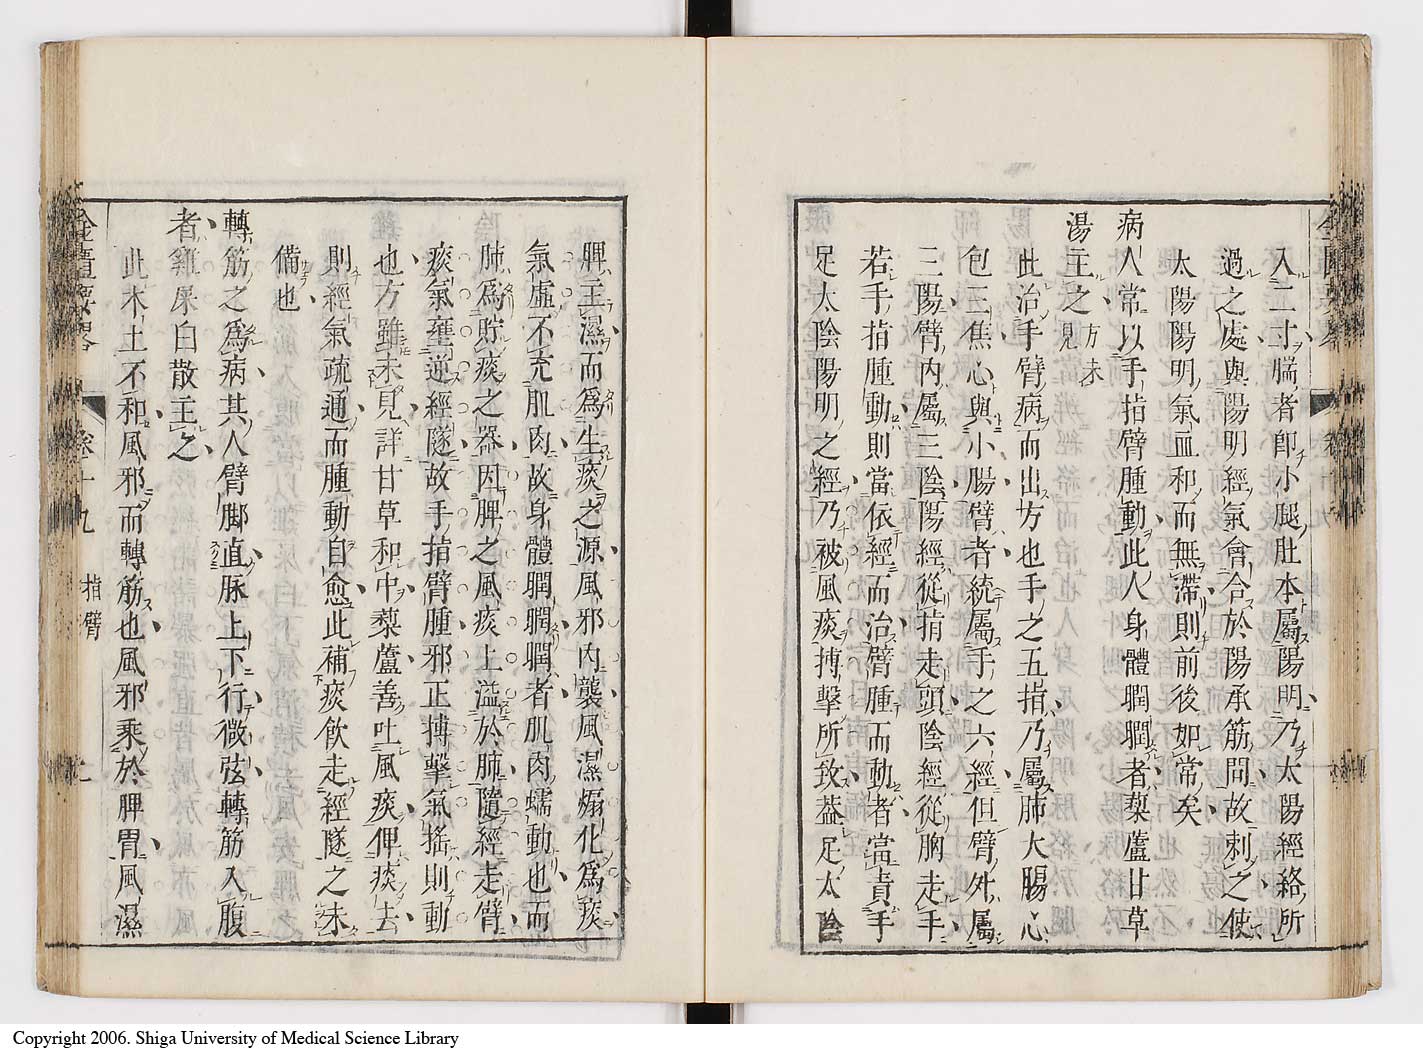 入二寸腨者卽小腿肚本屬陽明乃太陽經絡所
過之處與陽明經氣會合於陽承筋間故刺之使
太陽陽明氣血和而無滯則前後如常矣
病人常以手指臂腫動此人身體瞤瞤者藜蘆甘草
湯主之方未見
此治手臂病而出方也手之五指乃屬肺大腸心
包三焦心與小腸臂者統屬手之六經但臂外屬
三陽臂內屬三陰陽經從指走頭陰經從胸走手
若手指腫動則當依經而治臂腫而動者當責手
足太陰陽明之經乃被風痰搏擊所致蓋足太陰
脾主濕而爲生痰之源風邪內襲風濕煽化爲痰
氣虛不充肌肉故身體瞤瞤瞤者肌肉蠕動也而
肺爲貯痰之器因脾之風痰上溢於肺隨經走臂
痰氣壅逆經隧故手指臂腫邪正搏擊氣搖則動
也方雖未見詳甘草和中藜蘆善吐風痰俾痰去
則經氣疏通而腫動自愈此補痰飮走經隧之未
備也
轉筋之爲病其人臂脚直脉上下行微弦轉筋入腹
者雞屎白散主之
此木土不和風邪而轉筋也風邪乘於脾胃風濕
金匱要畧
卷十九
指臂
Copyright 2006. Shiga University of Medical Science Library